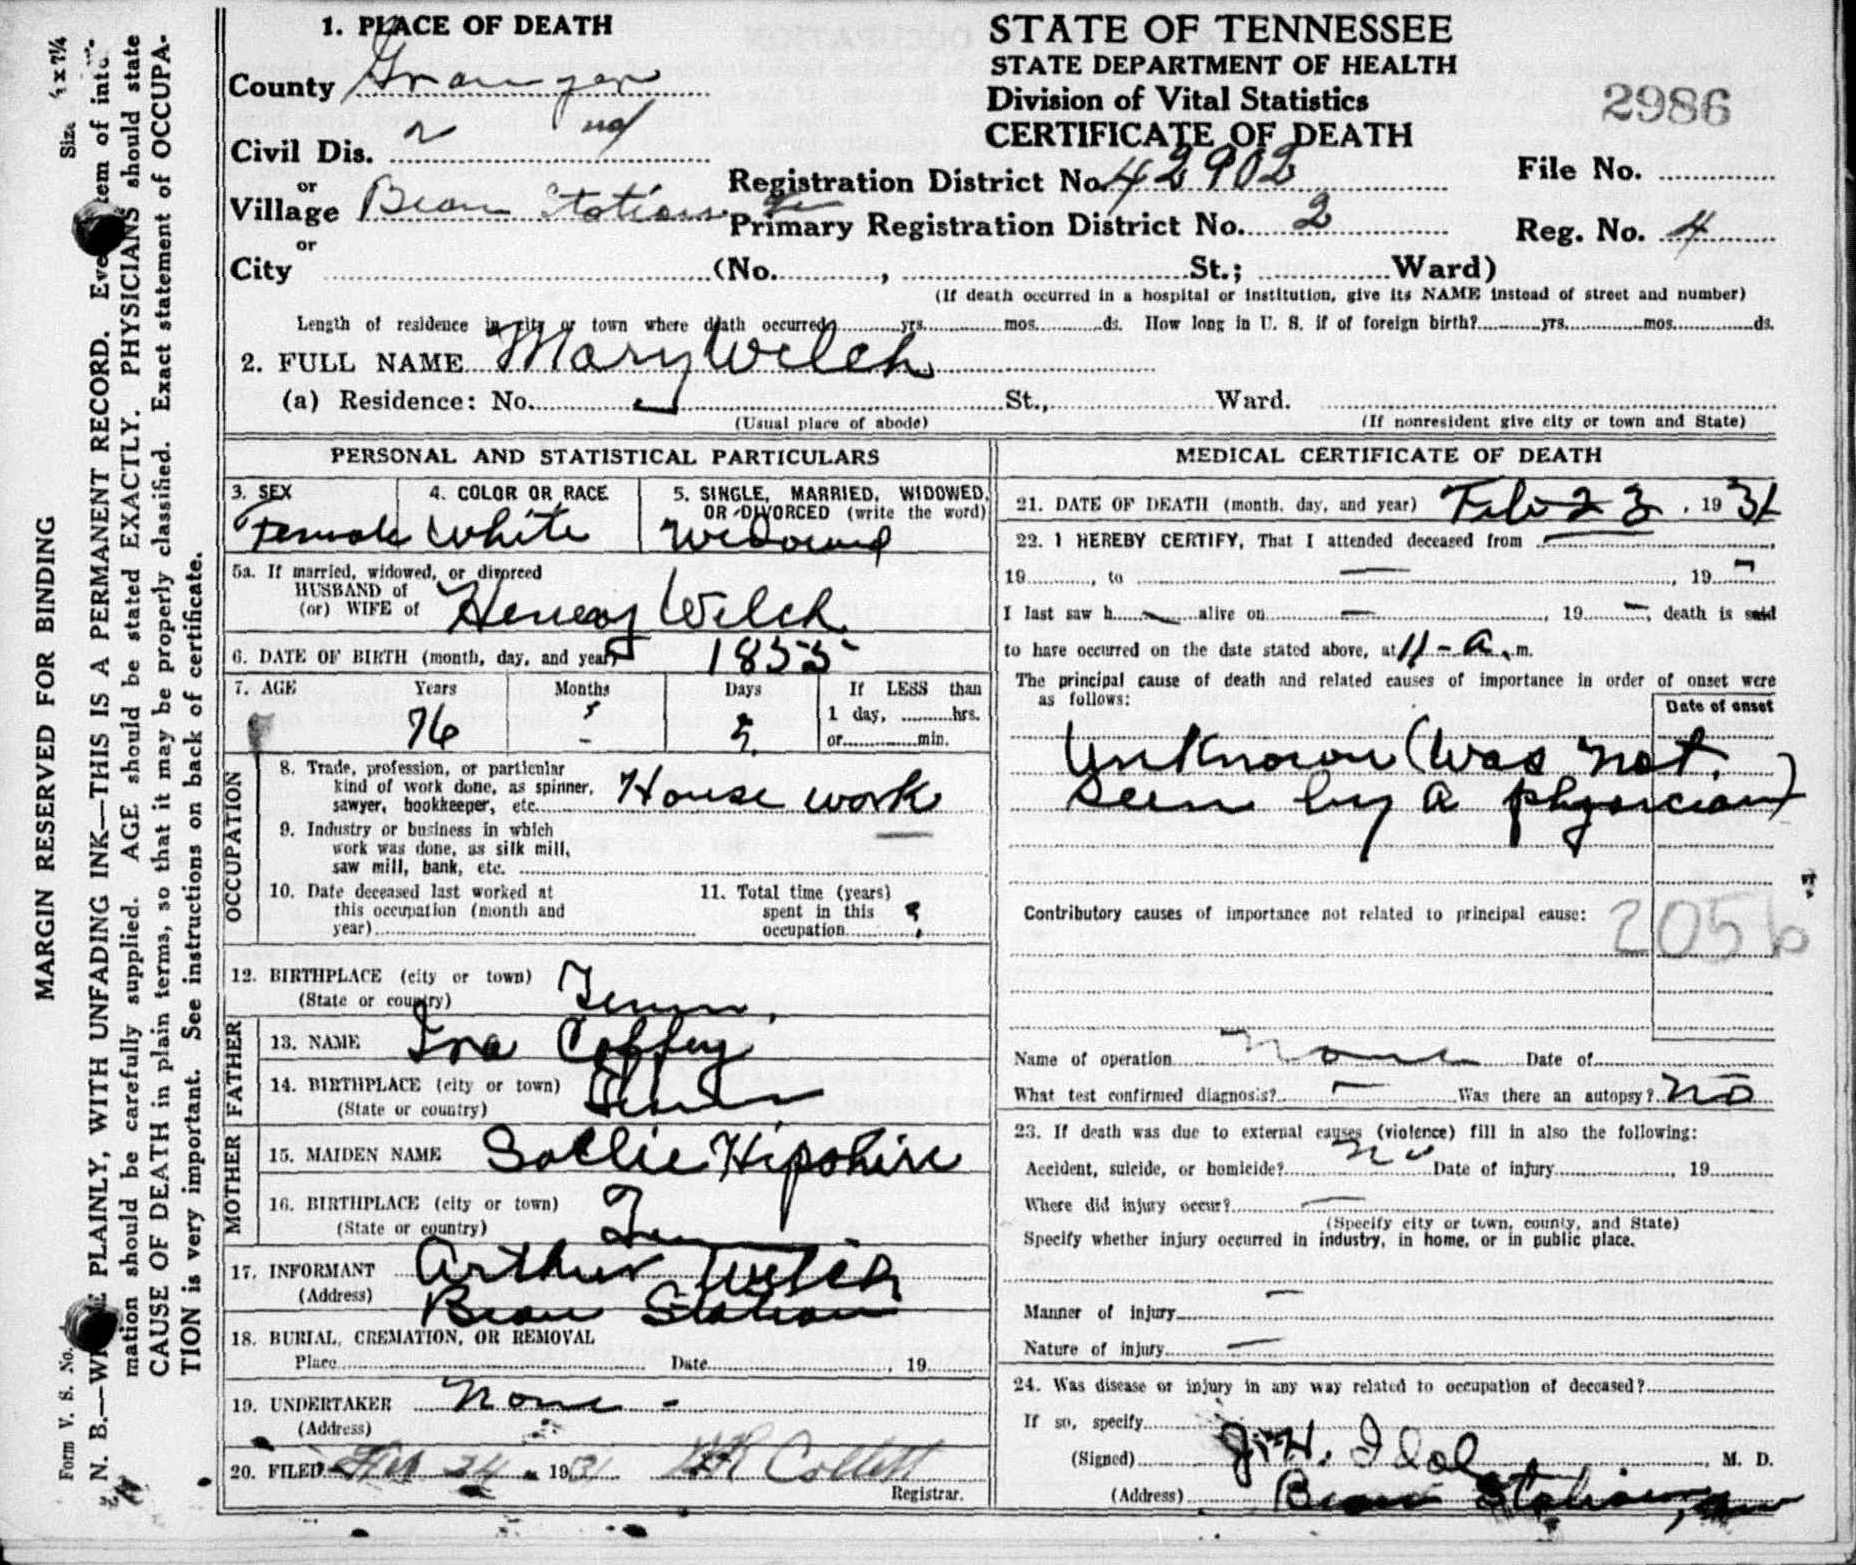 MARGIN RESERVED FOR BINDING
N. B.—WRITE PLAINLY, WITH UNFADING INK—THIS IS A PERMANENT RECORD. Every item of infor-
mation should be carefully supplied. AGE should be stated EXACTLY. PHYSICIANS should state
CAUSE OF DEATH in plain terms, so that it may be properly classified. Exact statement of OCCUPA-
TION is very important. See instructions on back of certificate.
Form V. S. No.
Size 4 x 7¼
1. PLACE OF DEATH
County Grainger
Civil Dis. 2 nd
or
Village Bean Station
or
City (No. , St.; Ward)
STATE OF TENNESSEE
STATE DEPARTMENT OF HEALTH
Division of Vital Statistics
CERTIFICATE OF DEATH
2986
Registration District No. 42902
File No.
Primary Registration District No. 2
Reg. No. 4
(If death occurred in a hospital or institution, give its NAME instead of street and number)
Length of residence in city or town where death occurred yrs. mos. ds. How long in U. S. if of foreign birth? yrs. mos. ds.
2. FULL NAME Mary Welch
(a) Residence: No. St., Ward.
(Usual place of abode) (If nonresident give city or town and State)
PERSONAL AND STATISTICAL PARTICULARS
3. SEX Female
4. COLOR OR RACE White
5. SINGLE, MARRIED, WIDOWED,
OR DIVORCED (write the word)
Widowed
5a. If married, widowed, or divorced
HUSBAND of
(or) WIFE of Henry Welch
6. DATE OF BIRTH (month, day, and year) 1855
7. AGE Years Months Days If LESS than
1 day, hrs.
or min.
76 ? - ?
OCCUPATION
8. Trade, profession, or particular
kind of work done, as spinner,
sawyer, bookkeeper, etc. House work
9. Industry or business in which
work was done, as silk mill,
saw mill, bank, etc.
10. Date deceased last worked at
this occupation (month and
year)
11. Total time (years)
spent in this
occupation ?
12. BIRTHPLACE (city or town) Tenn.
(State or country)
FATHER
13. NAME Ira Coffey
14. BIRTHPLACE (city or town) Tenn
(State or country)
MOTHER
15. MAIDEN NAME Sallie Hipshire
16. BIRTHPLACE (city or town) Tenn
(State or country)
17. INFORMANT Arthur Welch
(Address) Bean Station
18. BURIAL, CREMATION, OR REMOVAL
Place Date , 19
19. UNDERTAKER None -
(Address)
20. FILED Feb 24 1931 Collett
Registrar.
MEDICAL CERTIFICATE OF DEATH
21. DATE OF DEATH (month, day, and year) Feb 23, 1931
22. I HEREBY CERTIFY, That I attended deceased from —
19 , to — , 19 -
I last saw h — alive on — , 19 — , death is said
to have occurred on the date stated above, at 11 - a. m.
The principal cause of death and related causes of importance in order of onset were
as follows:
Date of onset
Unknown (Was not
seen by a physician)
Contributory causes of importance not related to principal cause:
205 b
Name of operation None Date of
What test confirmed diagnosis? — Was there an autopsy? No
23. If death was due to external causes (violence) fill in also the following:
Accident, suicide, or homicide? No Date of injury , 19
Where did injury occur? —
(Specify city or town, county, and State)
Specify whether injury occurred in industry, in home, or in public place.
Manner of injury —
Nature of injury —
24. Was disease or injury in any way related to occupation of deceased?
If so, specify
(Signed) J. H. Idol , M. D.
(Address) Bean Station,